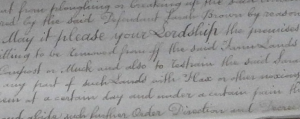 from ploughing or breaking up the said
by the said Defendant Brown by reason
May it please your Lordship the premises
to be removed from off the said Farm Lands
Compost or Muck and also to restrain the said
any part of such Lands with Flax or other
at a certain day and under a certain pain
such further Order Direction and